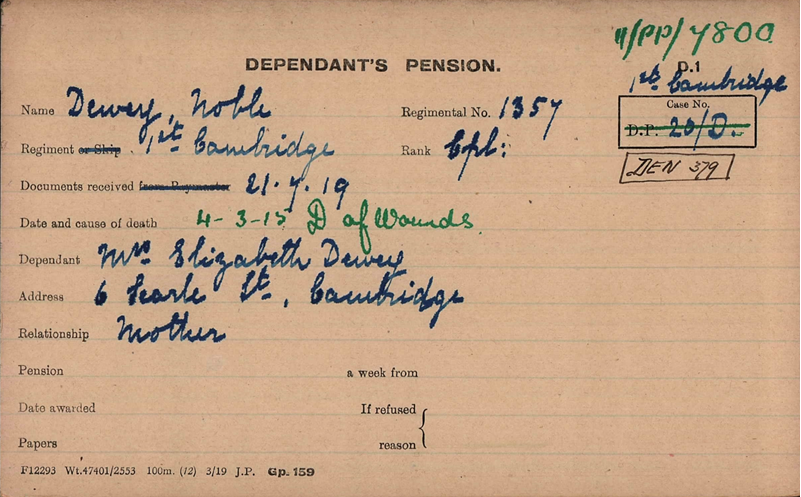 11/PP/7800
DEPENDANT'S PENSION.
D.1
1st Cambridge
Name Dewey, Noble Regimental No. 1357
Case No.
D.P. 20/D.
Regiment or Ship. 1st Cambridge Rank Cpl:
DEN 379
Documents received from Paymaster 21.7.19
Date and cause of death 4-3-15 D of Wounds.
Dependant Mrs Elizabeth Dewey
Address 6 Searle St., Cambridge
Relationship Mother
Pension a week from
Date awarded If refused
Papers reason
F12293 Wt.47401/2553 100m. (12) 3/19 J.P. Gp. 159